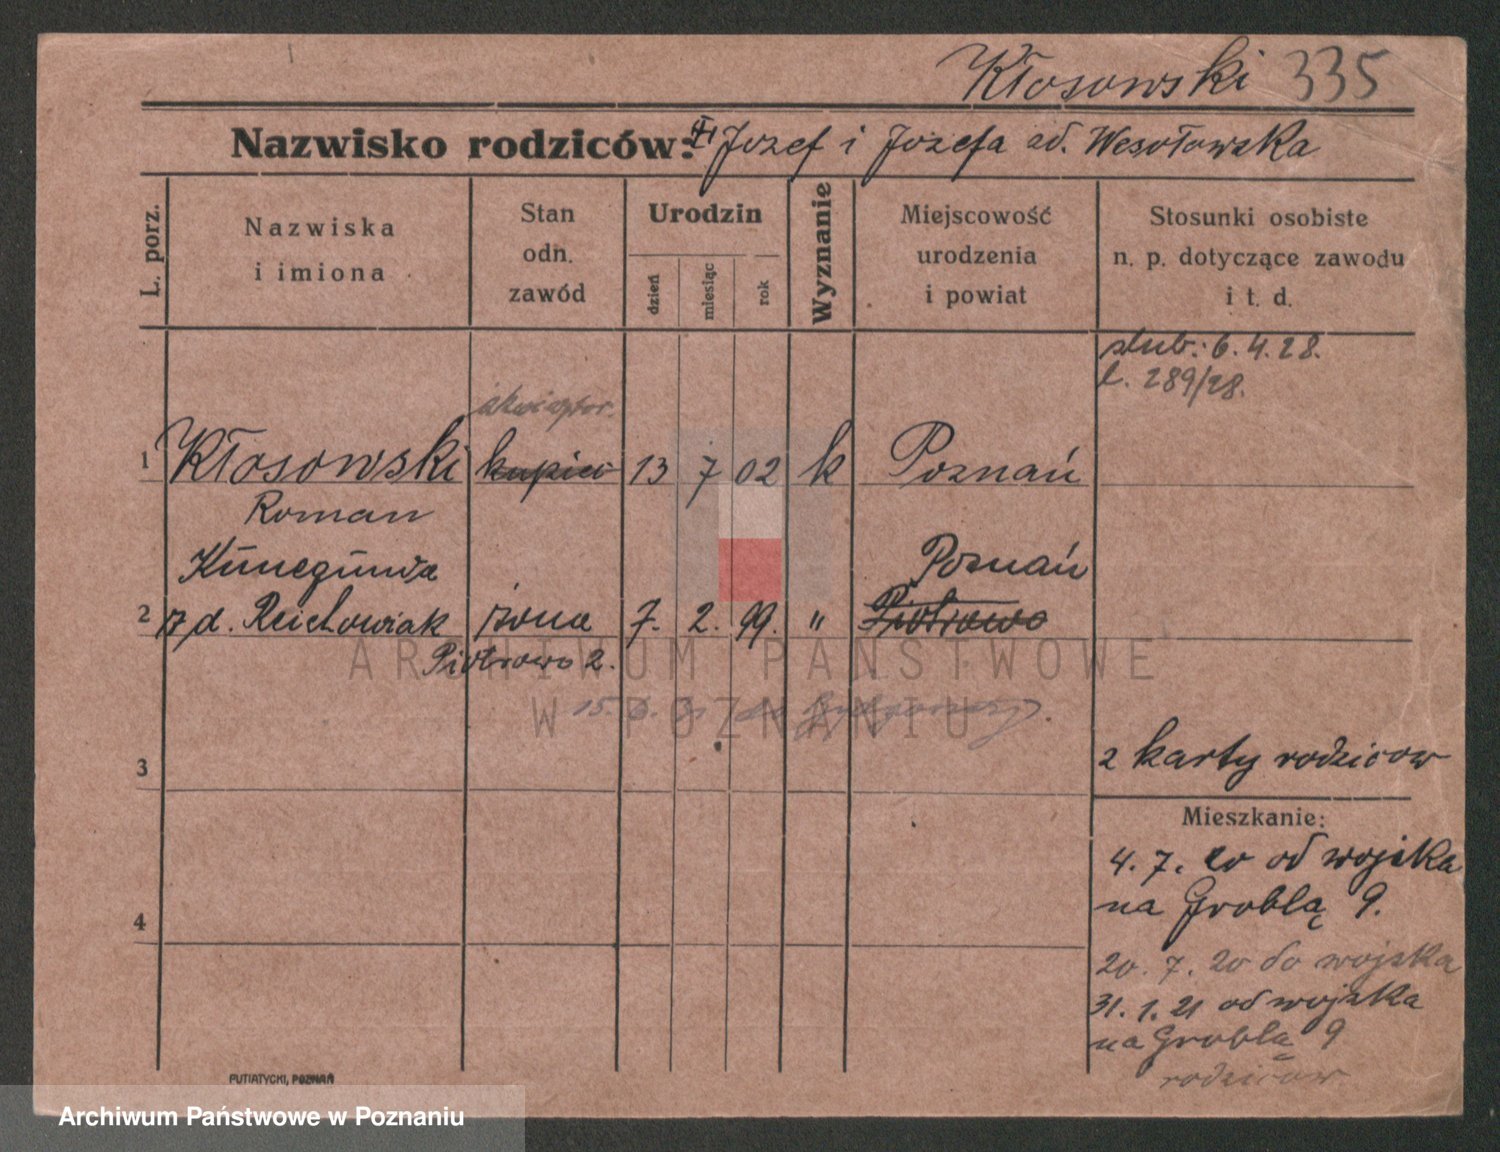 Kłosowski 335
Nazwisko rodziców: Józef i Józefa od. Wesołowska
L. porz.
Nazwiska
i imiona
Stan
odn.
zawód
Urodzin
dzień
miesiąc
rok
Wyznanie
Miejscowość
urodzenia
i powiat
Stosunki osobiste
n. p. dotyczące zawodu
i t. d.
ślub: 6.4.28.
l. 289/28.
akwizytor.
1 Kłosowski kupiec 13 7 02 k Poznań
Roman
Kunegunda Poznań
2 z d. Reichowiak żona 7. 2. 99. " Piotrowo
Piotrowo 2.
15. 6. 31 do
3
2 karty rodzicow
Mieszkanie:
4. 7. 20 od wojska
na Groblą 9.
4
20. 7. 20 do wojska
31. 1. 21 od wojska
na Groblą 9
rodziców
PUTIATYCKI, POZNAŃ
ARCHIWUM PAŃSTWOWE
W POZNANIU
Archiwum Państwowe w Poznaniu